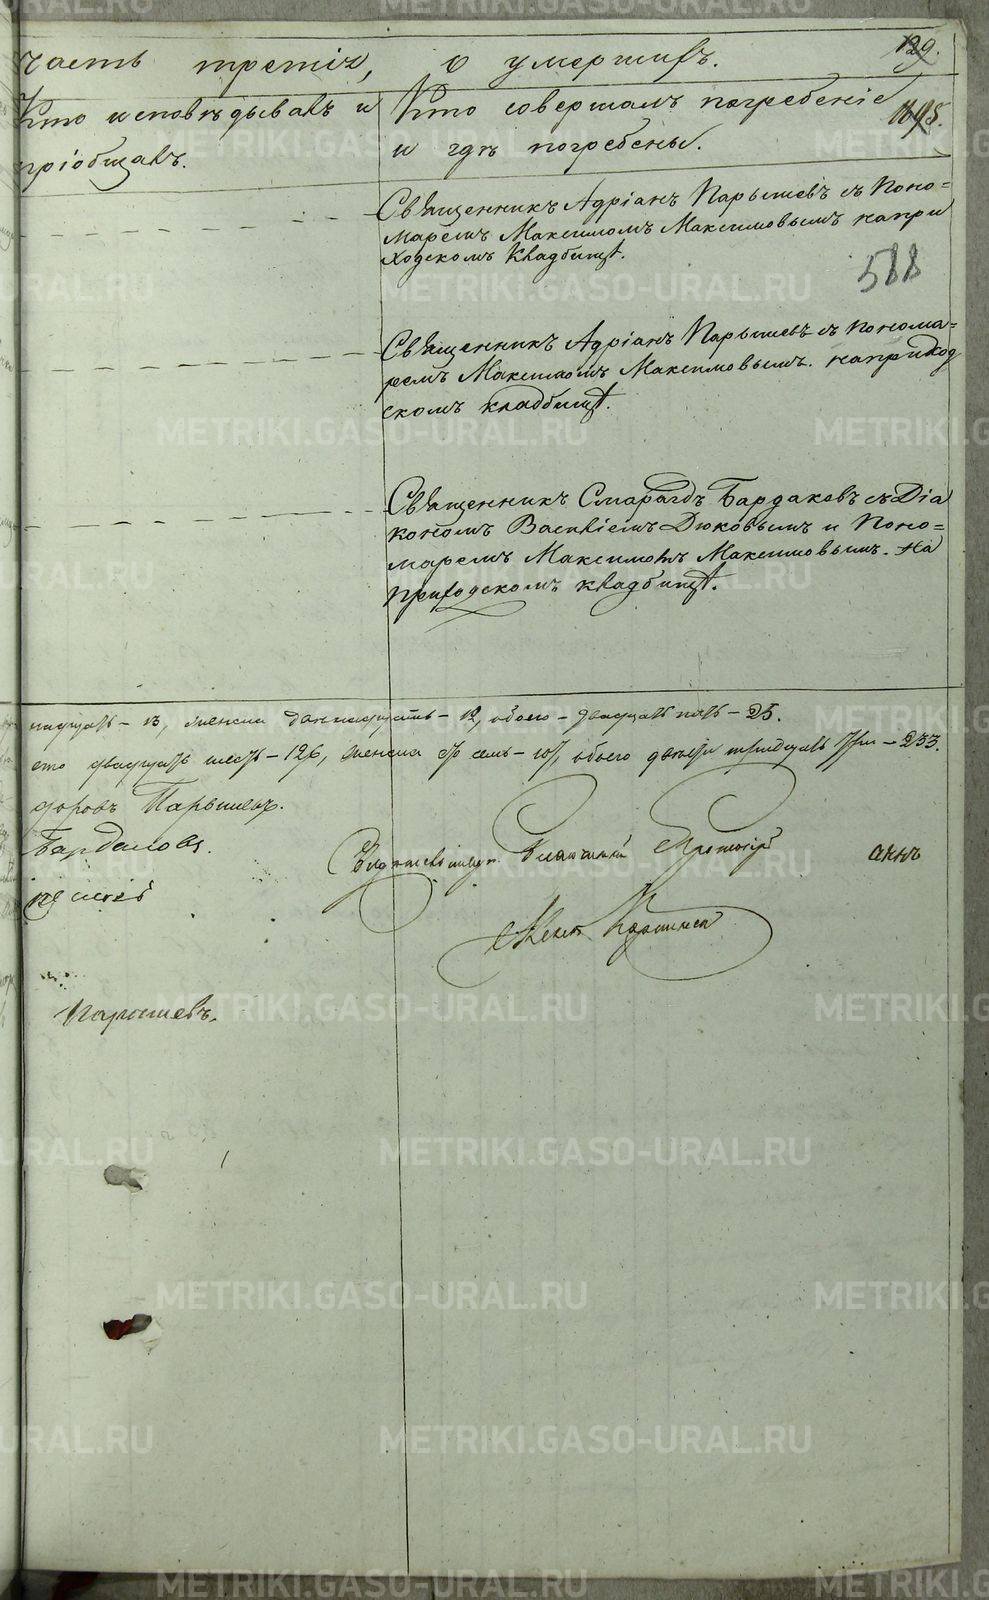 часть третія, о умершихъ.
129.
Кто исповѣдывалъ и
пріобщалъ.
Кто совершалъ погребеніе
и гдѣ погребены.
1698.
Священникъ Адріанъ Парышевъ съ Поно=
маремъ Максимомъ Максимовымъ на при
ходскомъ кладбищѣ.
588
Священникъ Адріанъ Парышевъ съ понома=
ремъ Максимомъ Максимовымъ. на приход
скомъ кладбищѣ.
Священникъ Смарагдъ Бардаковъ съ Діа
кономъ Василіемъ Дюковымъ и Поно=
маремъ Максимомъ Максимовымъ. на
приходскомъ кладбищѣ.
надцать – 13, женска двенадцать – 12, обоего – двадцать пять – 25.
сто двадцать шесть – 126, женска сто семь – 107, обоего двѣсти тридцать три – 233.
доровъ Парышевъ.
Бардаковъ.
Свидѣтельствовалъ Благочинный Протоіерей
Парышевъ.
METRIKI.GASO-URAL.RU